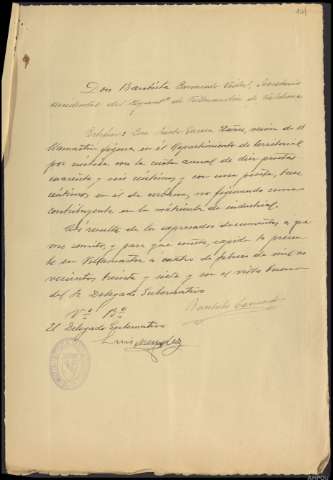 Don Bautista Vidal, Secretario
accidental del Ayunt.º de Villamartín de Valdeorras
Certifico: Que García, vecino de
Villamartín figura en el Repartimiento de territorial
por rústica con la cuota anual de diez pesetas
cuarenta y seis céntimos y con una peseta, trece
céntimos en el de urbana, no figurando como
contribuyente en la matrícula de industrial.
Así resulta de los expresados documentos a que
me remito, y para que conste, expido la presen-
te en Villamartín a cuatro de febrero de mil no-
vecientos treinta y siete y con el visto bueno
del Sr. Delegado Gubernativo
Vº Bº
Bautista
El Delegado Gubernativo
Luis
AHPOU